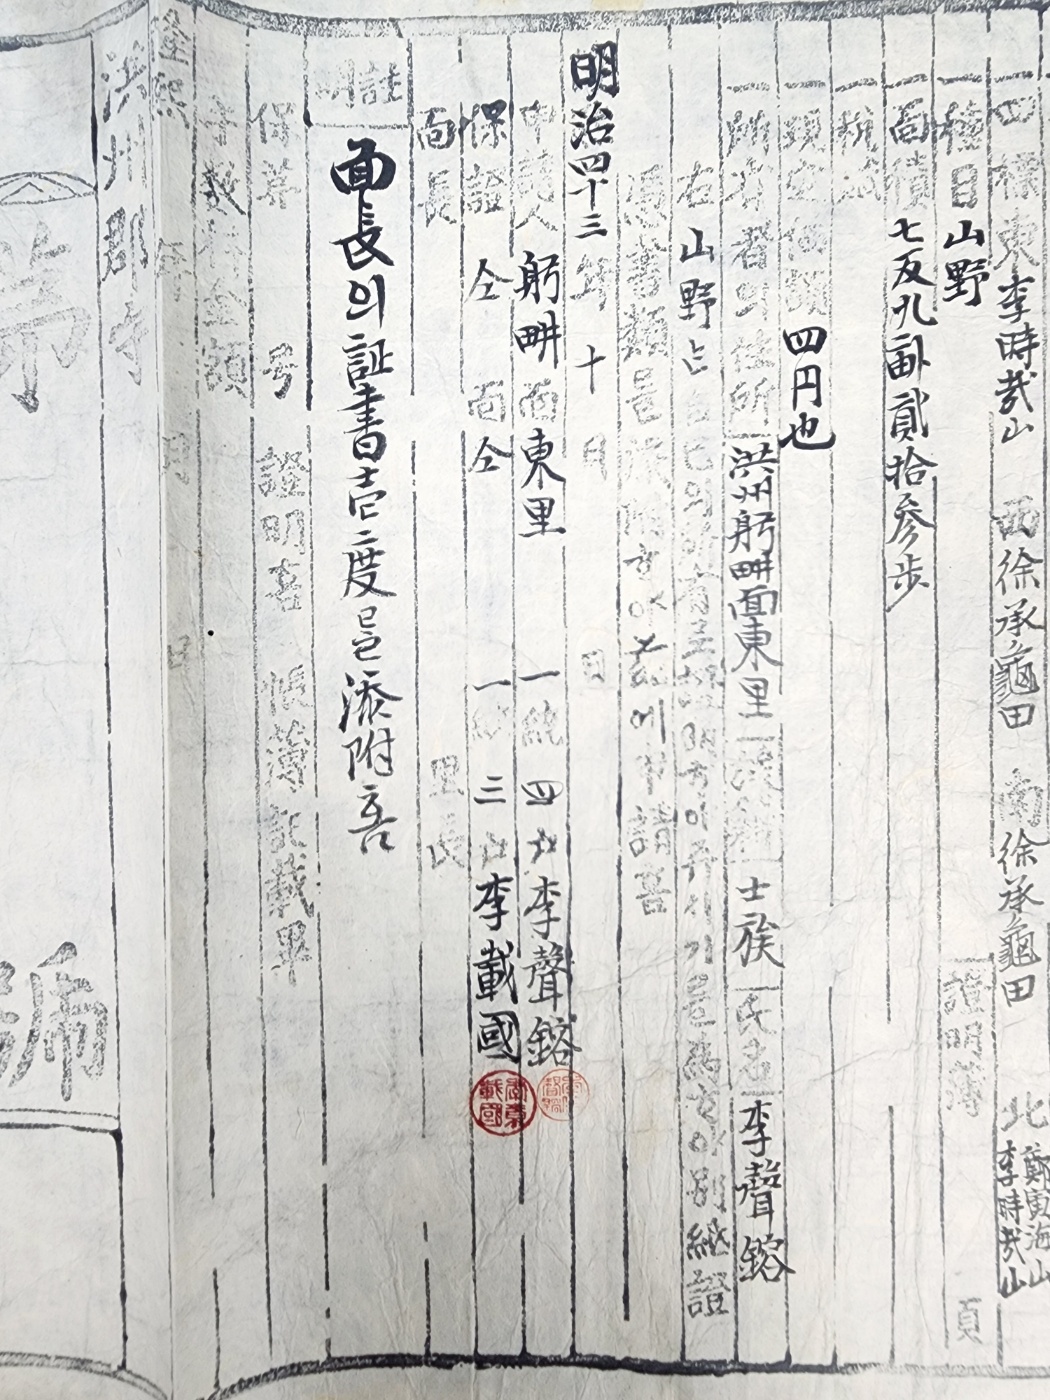 一四標東李時哉山 西徐承龜田 南徐承龜田 北鄭寅海山 李時哉山
一種目山野 證明簿 頁
一面積七反九畝貳拾参步
一
一現定價額四円也
一所有者의住所洪州躬畊面東里 士族 氏名 李聲鎔
右山野는自己의所有 別紙證
憑書類를 添附하야 玆에申請홈
明治四十三年十月 日
申請人 躬畊面東里 一統四戶李聲鎔
保證 仝面仝 一統三戶李載國
面長 里長
註明
面長의証書壹度를添附홈
保第 号 證明홈 帳簿記載畢
手數料金額
隆熙 年 月 日
洪州郡守
第 號
李載國